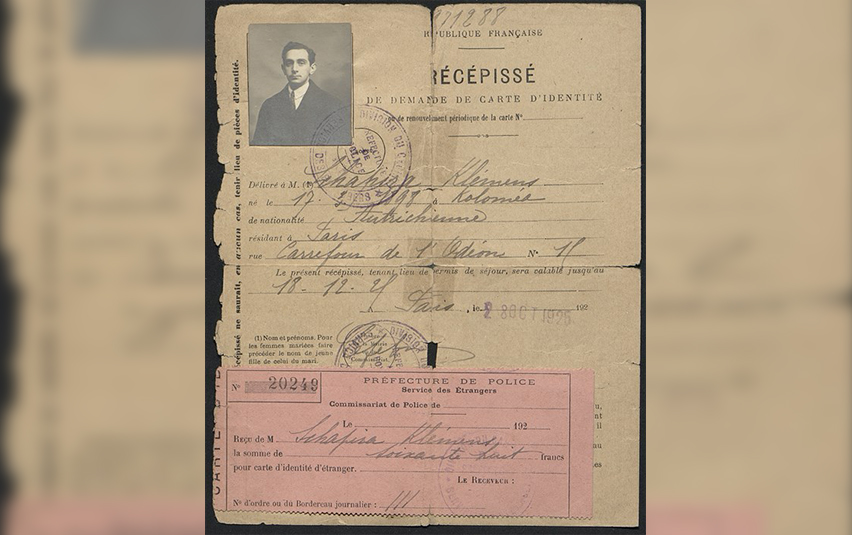 271288
RÉPUBLIQUE FRANÇAISE
RÉCÉPISSÉ
DE DEMANDE DE CARTE D'IDENTITÉ
ou de renouvellement périodique de la carte N°
Délivré à M. (1) Schapira Klémens
né le 17. 3. 1898 à Kolomea
de nationalité Autrichienne
résidant à Paris
rue Carrefour de l'Odéon N° 15
Le présent récépissé, tenant lieu de permis de séjour, sera valable jusqu'au
18-12-25
Paris, le 28 OCT 1925 192
(1) Nom et prénoms. Pour
les femmes mariées faire
précéder le nom de jeune
fille de celui du mari.
récépissé ne saurait, en aucun cas, tenir lieu de pièces d'identité.
N° 20249
PRÉFECTURE DE POLICE
Service des Étrangers
Commissariat de Police de
Le 192
Reçu de M Schapira Klémens
la somme de soixante huit francs
pour carte d'identité d'étranger.
LE RECEVEUR :
N° d'ordre ou du Bordereau journalier :